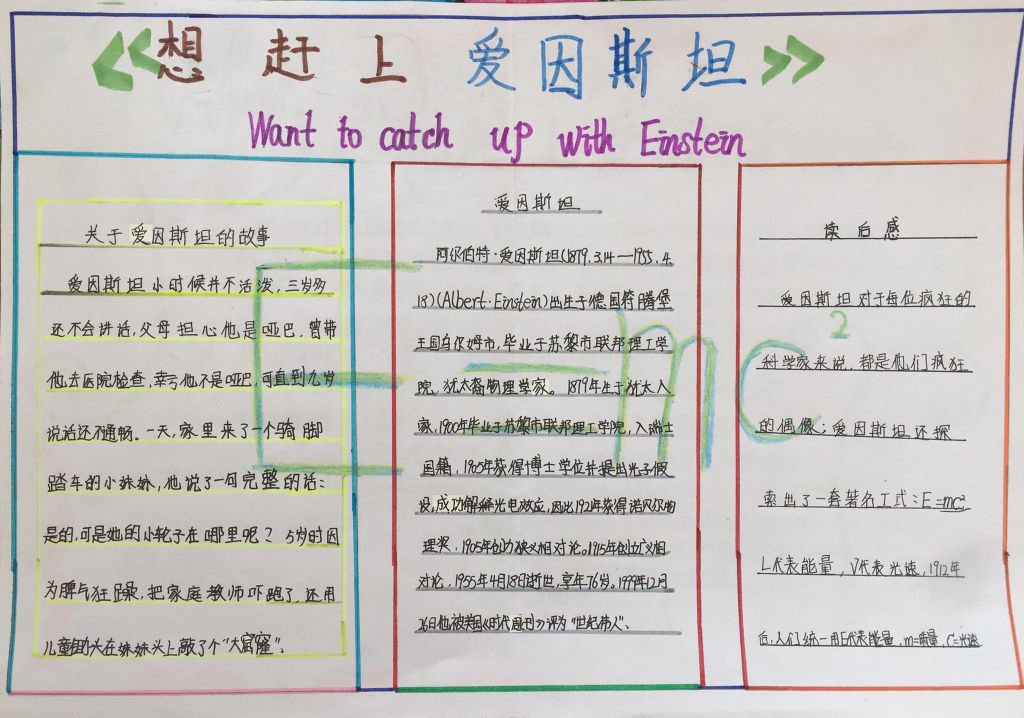 《想 赶 上 爱因斯坦》
Want to catch up with Einstein
关于爱因斯坦的故事
爱因斯坦小时候并不活泼，三岁多
还不会讲话，父母担心他是哑巴，曾带
他去医院检查，幸亏他不是哑巴，可直到九岁
说话还不通畅。一天，家里来了一个骑脚
踏车的小妹妹，他说了一句完整的话：
是的，可是她的小轮子在哪里呢？ 5岁时因
为脾气狂躁，把家庭教师吓跑了，还用
儿童锄头在妹妹头上敲了个“大窟窿”。
爱因斯坦
阿尔伯特·爱因斯坦(1879.3.14—1955.4.
18)(Albert·Einstein)出生于德国符腾堡
王国乌尔姆市，毕业于苏黎市联邦理工学
院，犹太裔物理学家。 1879年生于犹太人
家，1900年毕业于苏黎市联邦理工学院，入瑞士
国籍，1905年获得博士学位并提出光子假
设，成功解释光电效应，因此1921年获得诺贝尔物
理奖，1905年创办狭义相对论。1915年创立广义相
对论，1955年4月18日逝世，享年76岁。1999年12月
26日他被美国《时代周刊》评为“世纪伟人”。
读后感
爱因斯坦对于每位疯狂的
科学家来说，都是他们疯狂
的偶像；爱因斯坦还探
索出了一套著名工式：E=mc²
L代表能量，V代表光速，1912年
后，人们统一用E代表能量，m=质量，C=光速
E=mc²